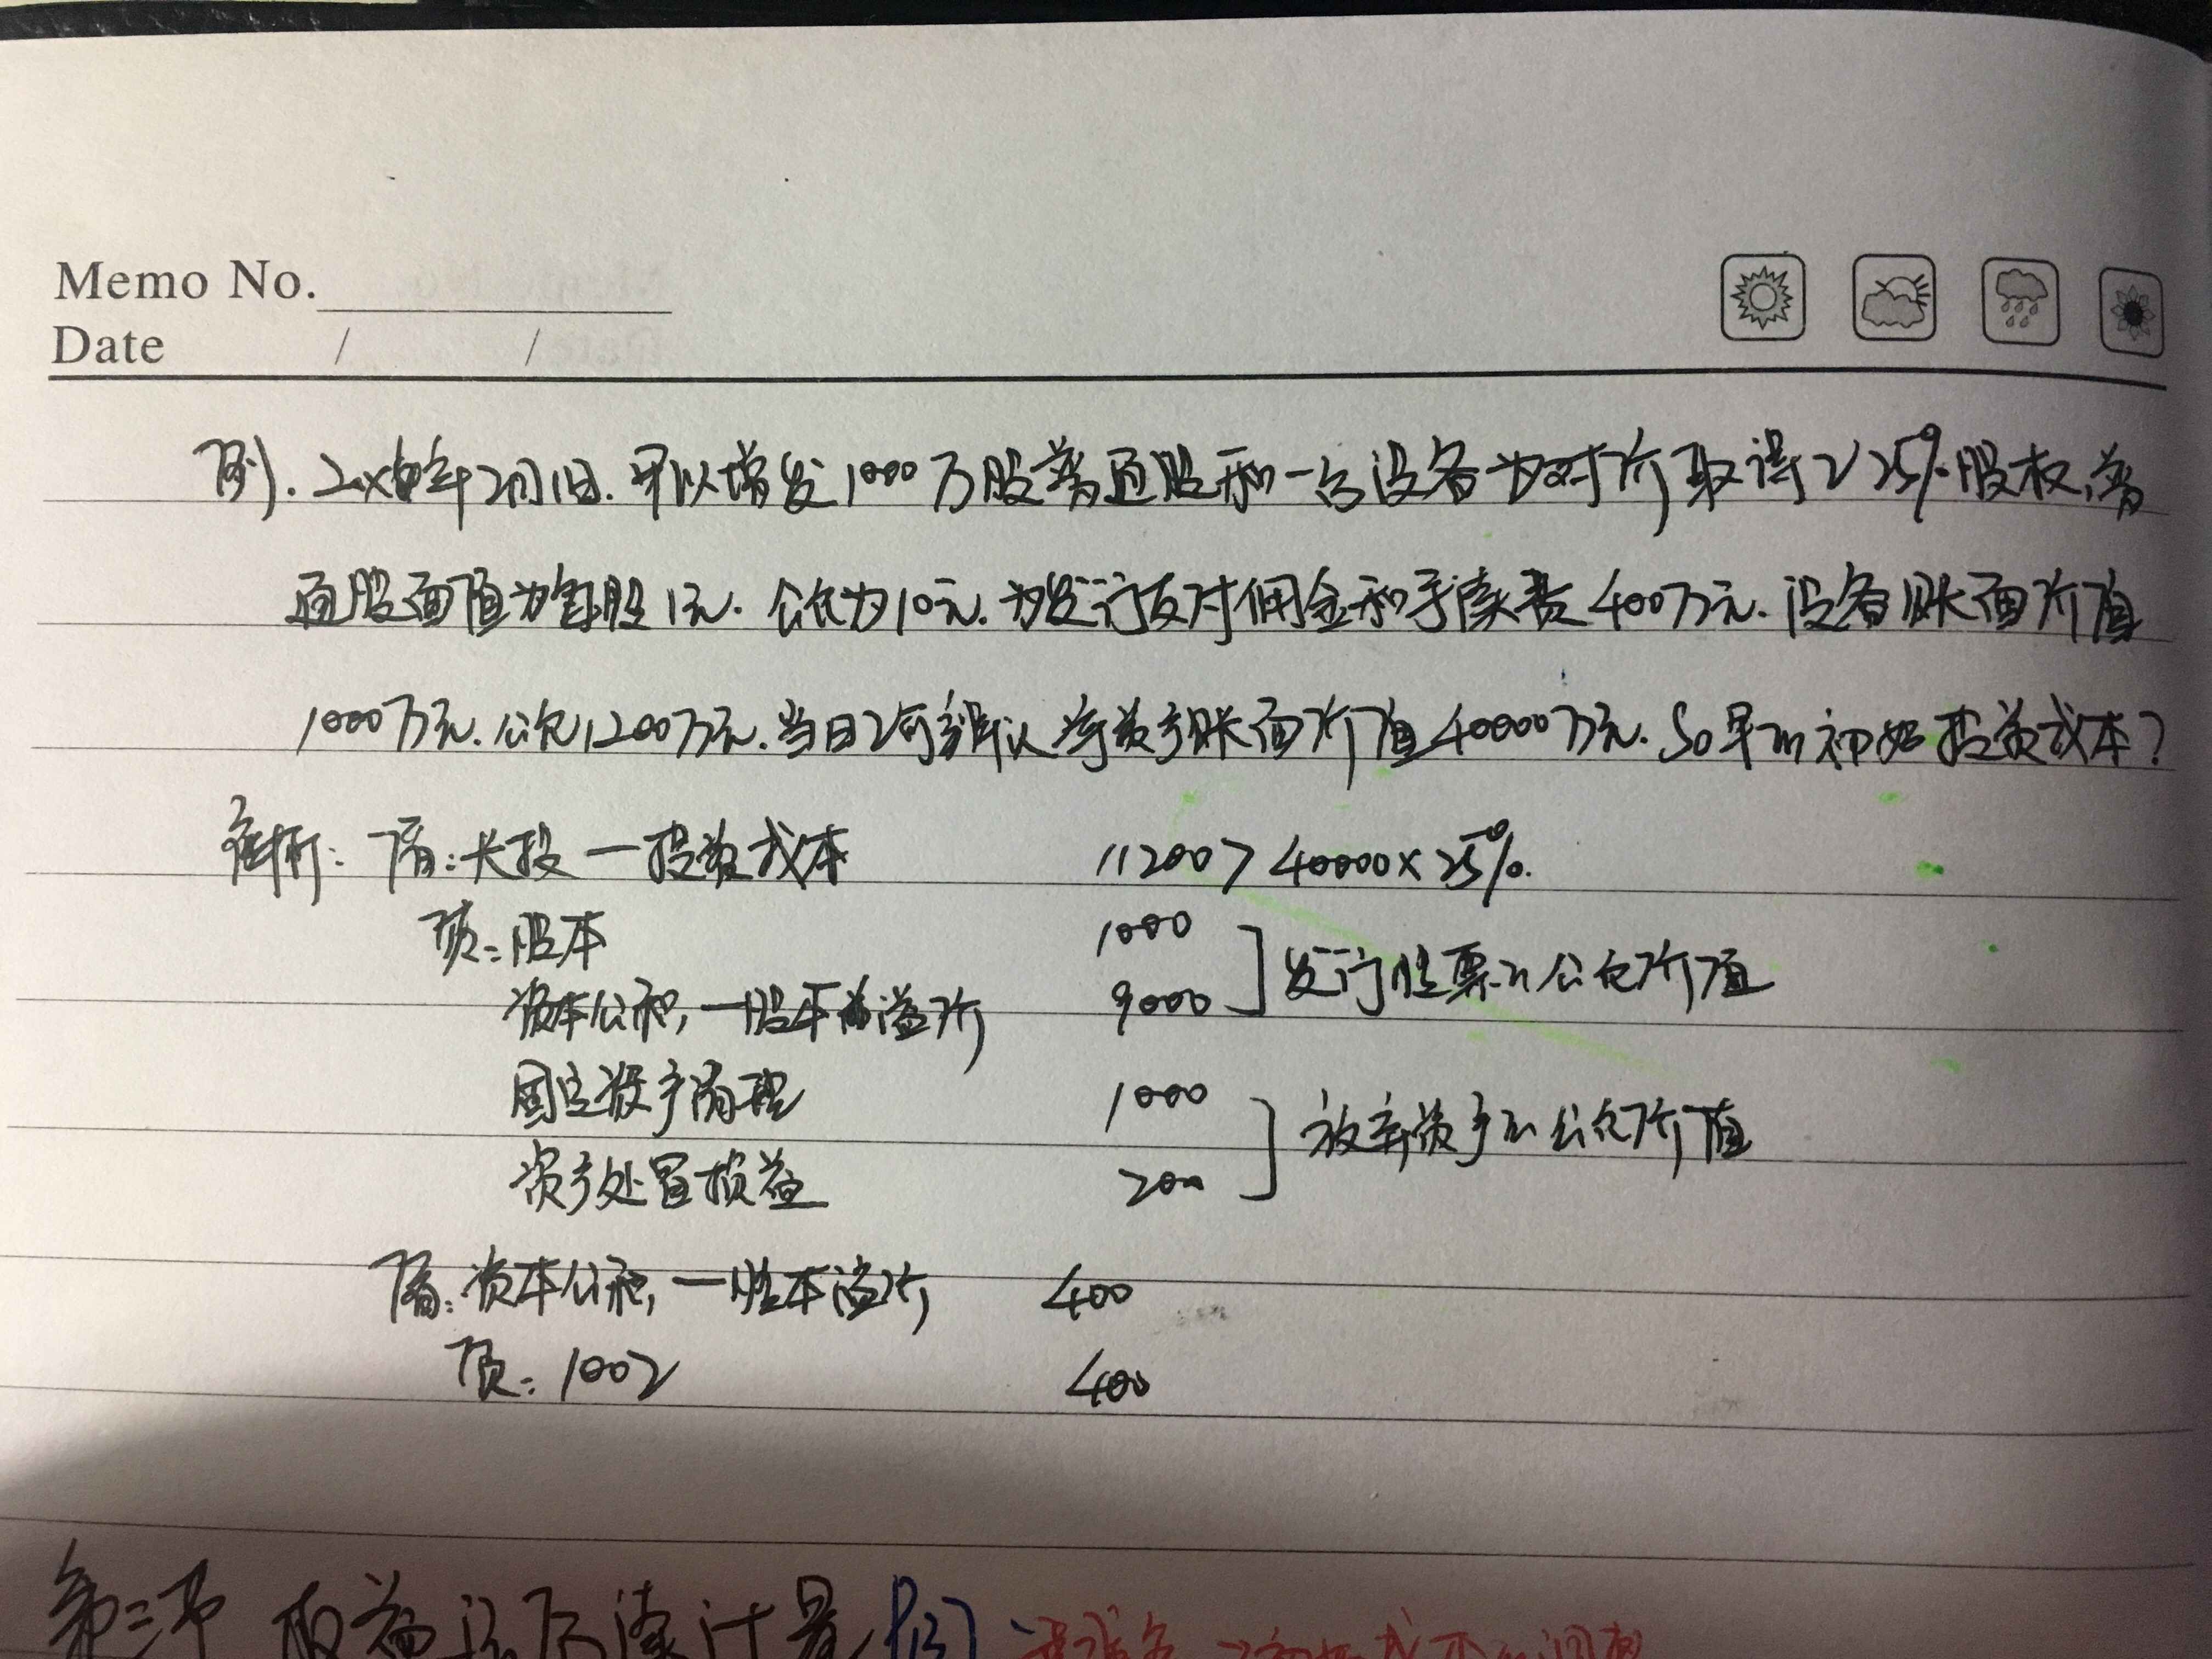 Memo No.
Date / /
例). 2x年2月1日. 甲以增发1000万股普通股和一台设备为对价取得乙25%股权,普
通股面值为每股1元. 公允为10元. 为发行支付佣金和手续费400万元. 设备账面价值
1000万元. 公允1200万元. 当日乙可辨认净资产账面价值40000万元. So甲的初始投资成本?
解析: 借:长投一投资成本 11200>40000×25%.
贷:股本 1000
资本公积,一股本溢价 9000 发行股票的公允价值
固定资产清理 1000
资产处置损益 200 放弃资产的公允价值
借:资本公积,一股本溢价 400
贷:1002 400
第三节 权益法后续计量 P137